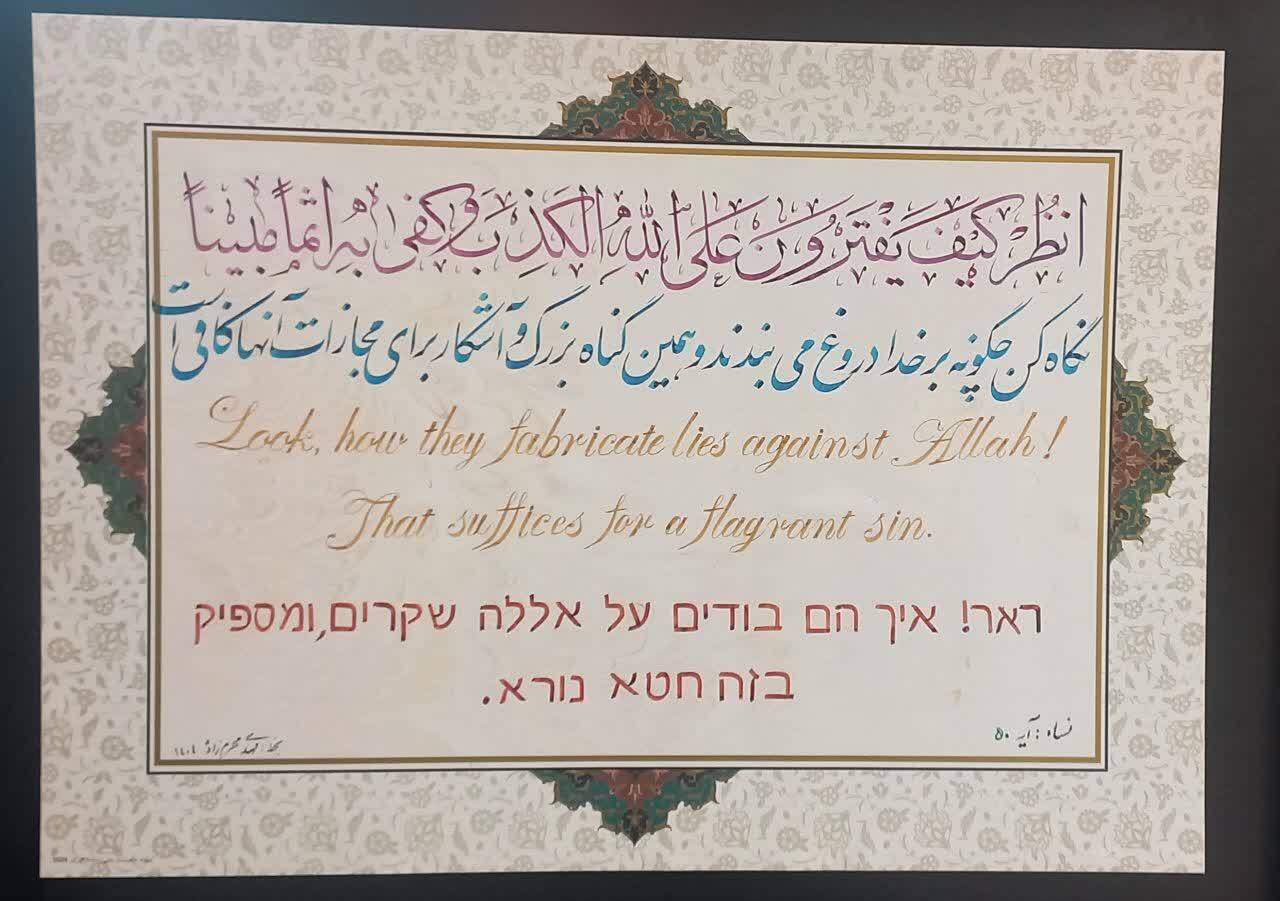 انْظُرْ كَيْفَ يَفْتَرُونَ عَلَى اللهِ الْكَذِبَ وَكَفَى بِهِ إِثْمًا مُبِينًا
نگاه کن چگونه بر خدا دروغ می بندند و همین گناه بزرگ و آشکار برای مجازات آنها کافی است
Look, how they fabricate lies against Allah!
That suffices for a flagrant sin.
ראר! איך הם בודים על אללה שקרים,ומספיק
בזה חטא נורא.
نساء : آیه ۵۰